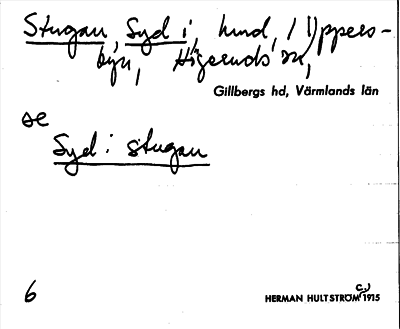 Stugan, Syd i, hmd, i Uppers-
byn, Högeruds sn,
Gillbergs hd, Värmlands län
se
Syd i stugan
6
HERMAN HULTSTRÖM c.) 1915